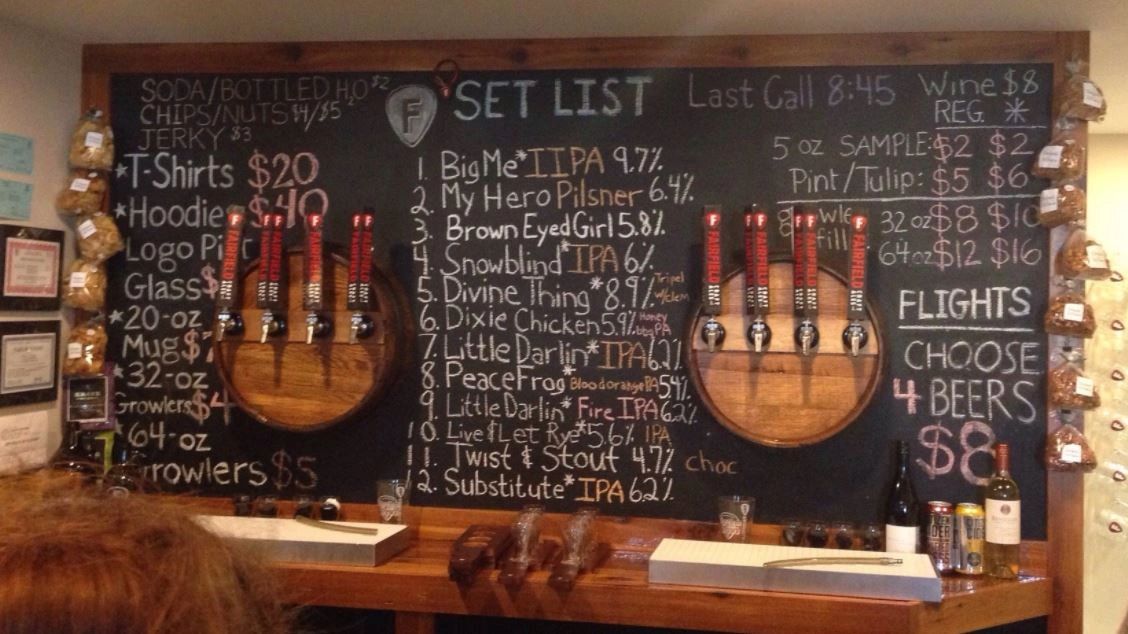 SODA/BOTTLED H2O $2
CHIPS/NUTS $4/$5
JERKY $3
*T-Shirts $20
*Hoodie $40
Logo Pint
Glass $
*20-oz
Mug $
*32-oz
Growlers $4
*64-oz
Growlers $5
F SET LIST
1. Big Me* IIPA 9.7%
2. My Hero Pilsner 6.4%
3. Brown Eyed Girl 5.8%
4. Snowblind* IPA 6%
5. Divine Thing* 8.9% Tripel w/clem
6. Dixie Chicken 5.9% Honey bbq PA
7. Little Darlin* IPA 6.2%
8. Peace Frog* Blood orange PA 5.4%
9. Little Darlin* Fire IPA 6.2%
10. Live & Let Rye* 5.6% IPA
11. Twist & Stout 4.7% choc
12. Substitute* IPA 6.2%
Last Call 8:45
Wine $8
REG. *
5 oz SAMPLE: $2 $2
Pint/Tulip: $5 $6
32 oz $8 $10
64 oz $12 $16
FLIGHTS
CHOOSE
4 BEERS
$8
F FAIRFIELD
F FAIRFIELD
F FAIRFIELD
F FAIRFIELD
F FAIRFIELD
F FAIRFIELD
F FAIRFIELD
F FAIRFIELD